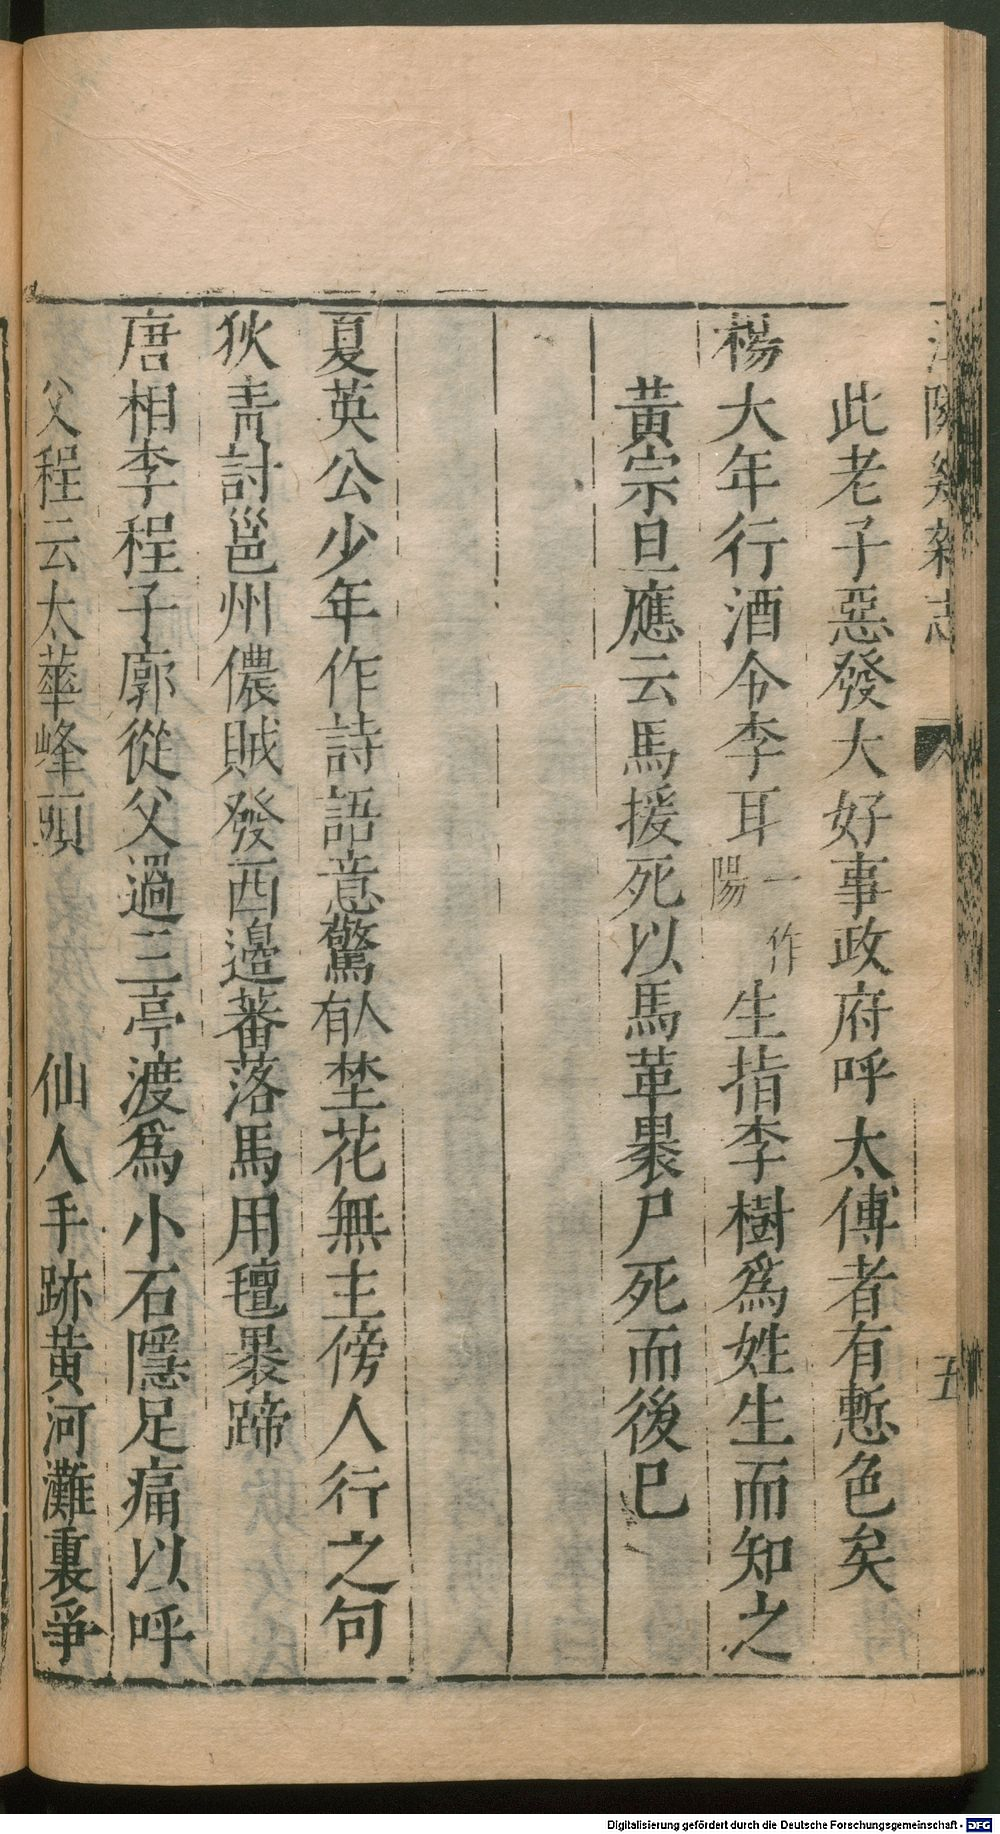 江隣幾雜志
五
此老子惡發大好事政府呼太傅者有慙色矣
楊大年行酒令李耳一作陽生指李樹爲姓生而知之
黃宗旦應云馬援死以馬革暴尸死而後已
夏英公少年作詩語意驚人有埜花無主傍人行之句
狄青討邕州儂賊發西邊蕃落馬用氊褁蹄
唐相李程子廓從父過三亭渡爲小石隱足痛以呼
父程云太華峰頭 仙人手跡黃河灘裏爭
Digitalisierung gefördert durch die Deutsche Forschungsgemeinschaft - DFG